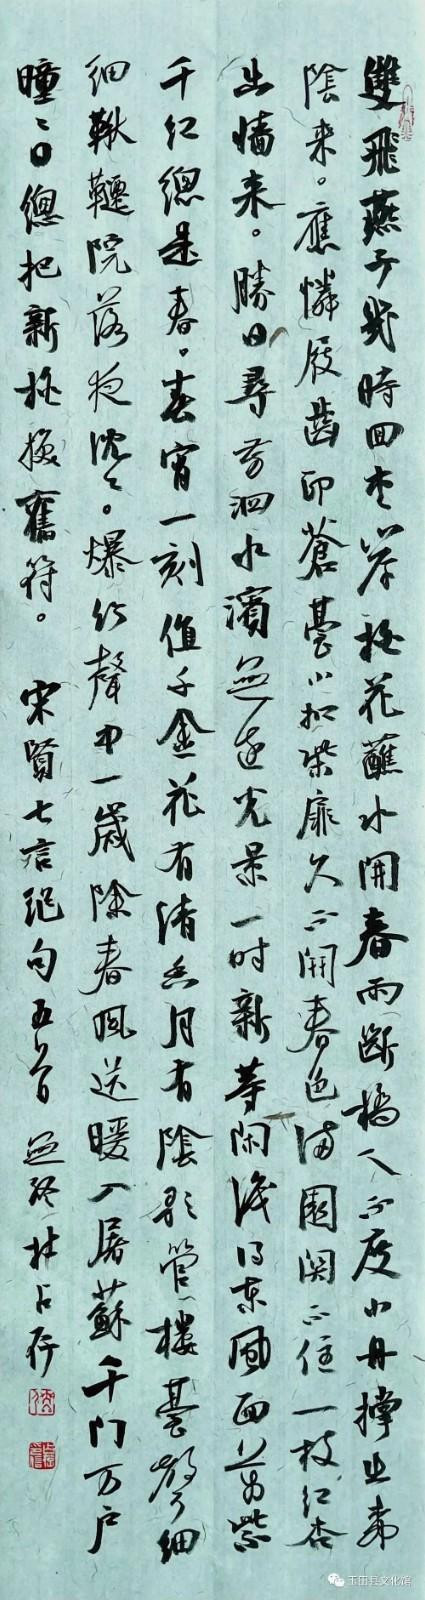 雙飛燕子幾時回夹岸桃花蘸水開春雨斷橋人不度小舟撑出柳
陰来。應憐屐齒印蒼苔小扣柴扉久不開春色满園関不住一枝红杏
出墙来。勝日尋芳泗水濱無边光景一时新等闲識得東風面萬紫
千红總是春。春宵一刻值千金花有清香月有陰歌管樓臺聲细
细鞦韆院落夜沈〻。爆竹聲中一歲除春風送暖入屠蘇千门万户
曈〻日總把新桃换舊符。 宋賢七言绝句五首 無終占存
玉田县文化馆